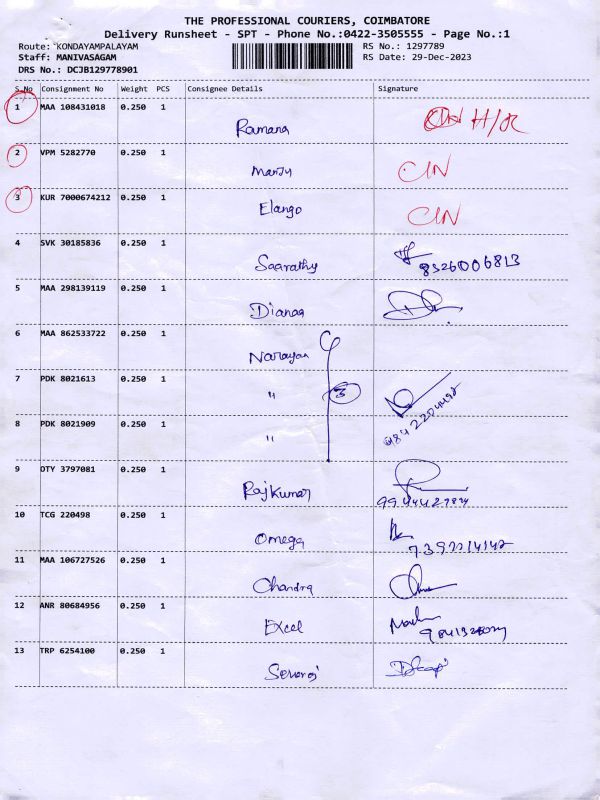 THE PROFESSIONAL COURIERS, COIMBATORE
Delivery Runsheet - SPT - Phone No.:0422-3505555 - Page No.:1
Route: KONDAYAMPALAYAM RS No.: 1297789
Staff: MANIVASAGAM RS Date: 29-Dec-2023
DRS No.: DCJB129778901
S.No Consignment No Weight PCS Consignee Details Signature
1 MAA 108431018 0.250 1
Ramana H/R
2 VPM 5282770 0.250 1
Manju CIN
3 KUR 7000674212 0.250 1
Elango CIN
4 SVK 30185836 0.250 1
Saarathy 8326006813
5 MAA 298139119 0.250 1
Dianaa
6 MAA 862533722 0.250 1
Narayan
7 PDK 8021613 0.250 1
" 3
8 PDK 8021909 0.250 1
"
9 OTY 3797081 0.250 1
Rajkumar
10 TCG 220498 0.250 1
Omega
11 MAA 106727526 0.250 1
Chandra
12 ANR 80684956 0.250 1
Excel
13 TRP 6254100 0.250 1